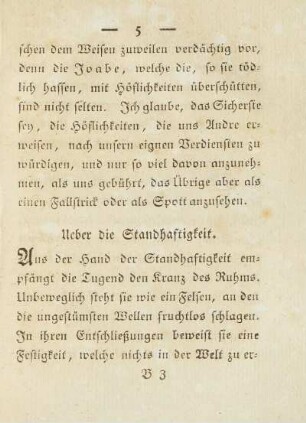 — 5 —
schen dem Weisen zuweilen verdächtig vor,
denn die Joabe, welche die, so sie töd-
lich hassen, mit Höflichkeiten überschütten,
sind nicht selten. Ich glaube, das Sicherste
sey, die Höflichkeiten, die uns Andre er-
weisen, nach unsern eignen Verdiensten zu
würdigen, und nur so viel davon anzuneh-
men, als uns gebührt, das Übrige aber als
einen Fallstrick oder als Spott anzusehen.
Ueber die Standhaftigkeit.
Aus der Hand der Standhaftigkeit em-
pfängt die Tugend den Kranz des Ruhms.
Unbeweglich steht sie wie ein Felsen, an den
die ungestümsten Wellen fruchtlos schlagen.
In ihren Entschließungen beweist sie eine
Festigkeit, welche nichts in der Welt zu er-
B 3